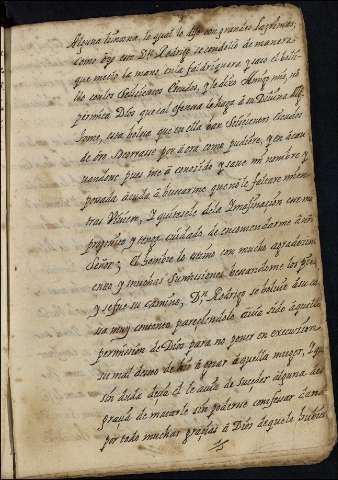 Alguna limosna, lo qual lo dijo con grandes lagrimas,
Como oyo eso Dn. Rodrigo se condolio de manera
que metio la mano en la faldriquera y saco el bolsi-
llo con los Seiscientos escudos, y le dixo Amigo mio, no
permita Dios que tal ofensa se haga a su Divina Mag.
tome, esta bolsa que en ella van Seiscientos escudos
de oro Socorrase por aora como pudiere, y en acau-
andose pues me a conocido y save mi nombre y
posada acuda a buscarme que no le faltare mien-
tras Viviere, y quitesele de la Imaginacion ese mal
proposito y tenga cuidado, de encomendarme a nro
Señor; El hombre lo estimo con mucho agradecimi-
ento y muchas Sumisiones, besandome los pies
y se fue su camino; Dn. Rodrigo se bolvio a su ca-
sa muy contento pareciendole avia sido aquello
permision de Dios para no poner en execucion
su mal deseo de hir a gozar a aquella muger, y que
sin duda devia de le avia de suceder alguna des-
gracia de matarle sin poderse confesar dava
por todo muchas gracias a Dios de que le hubiese